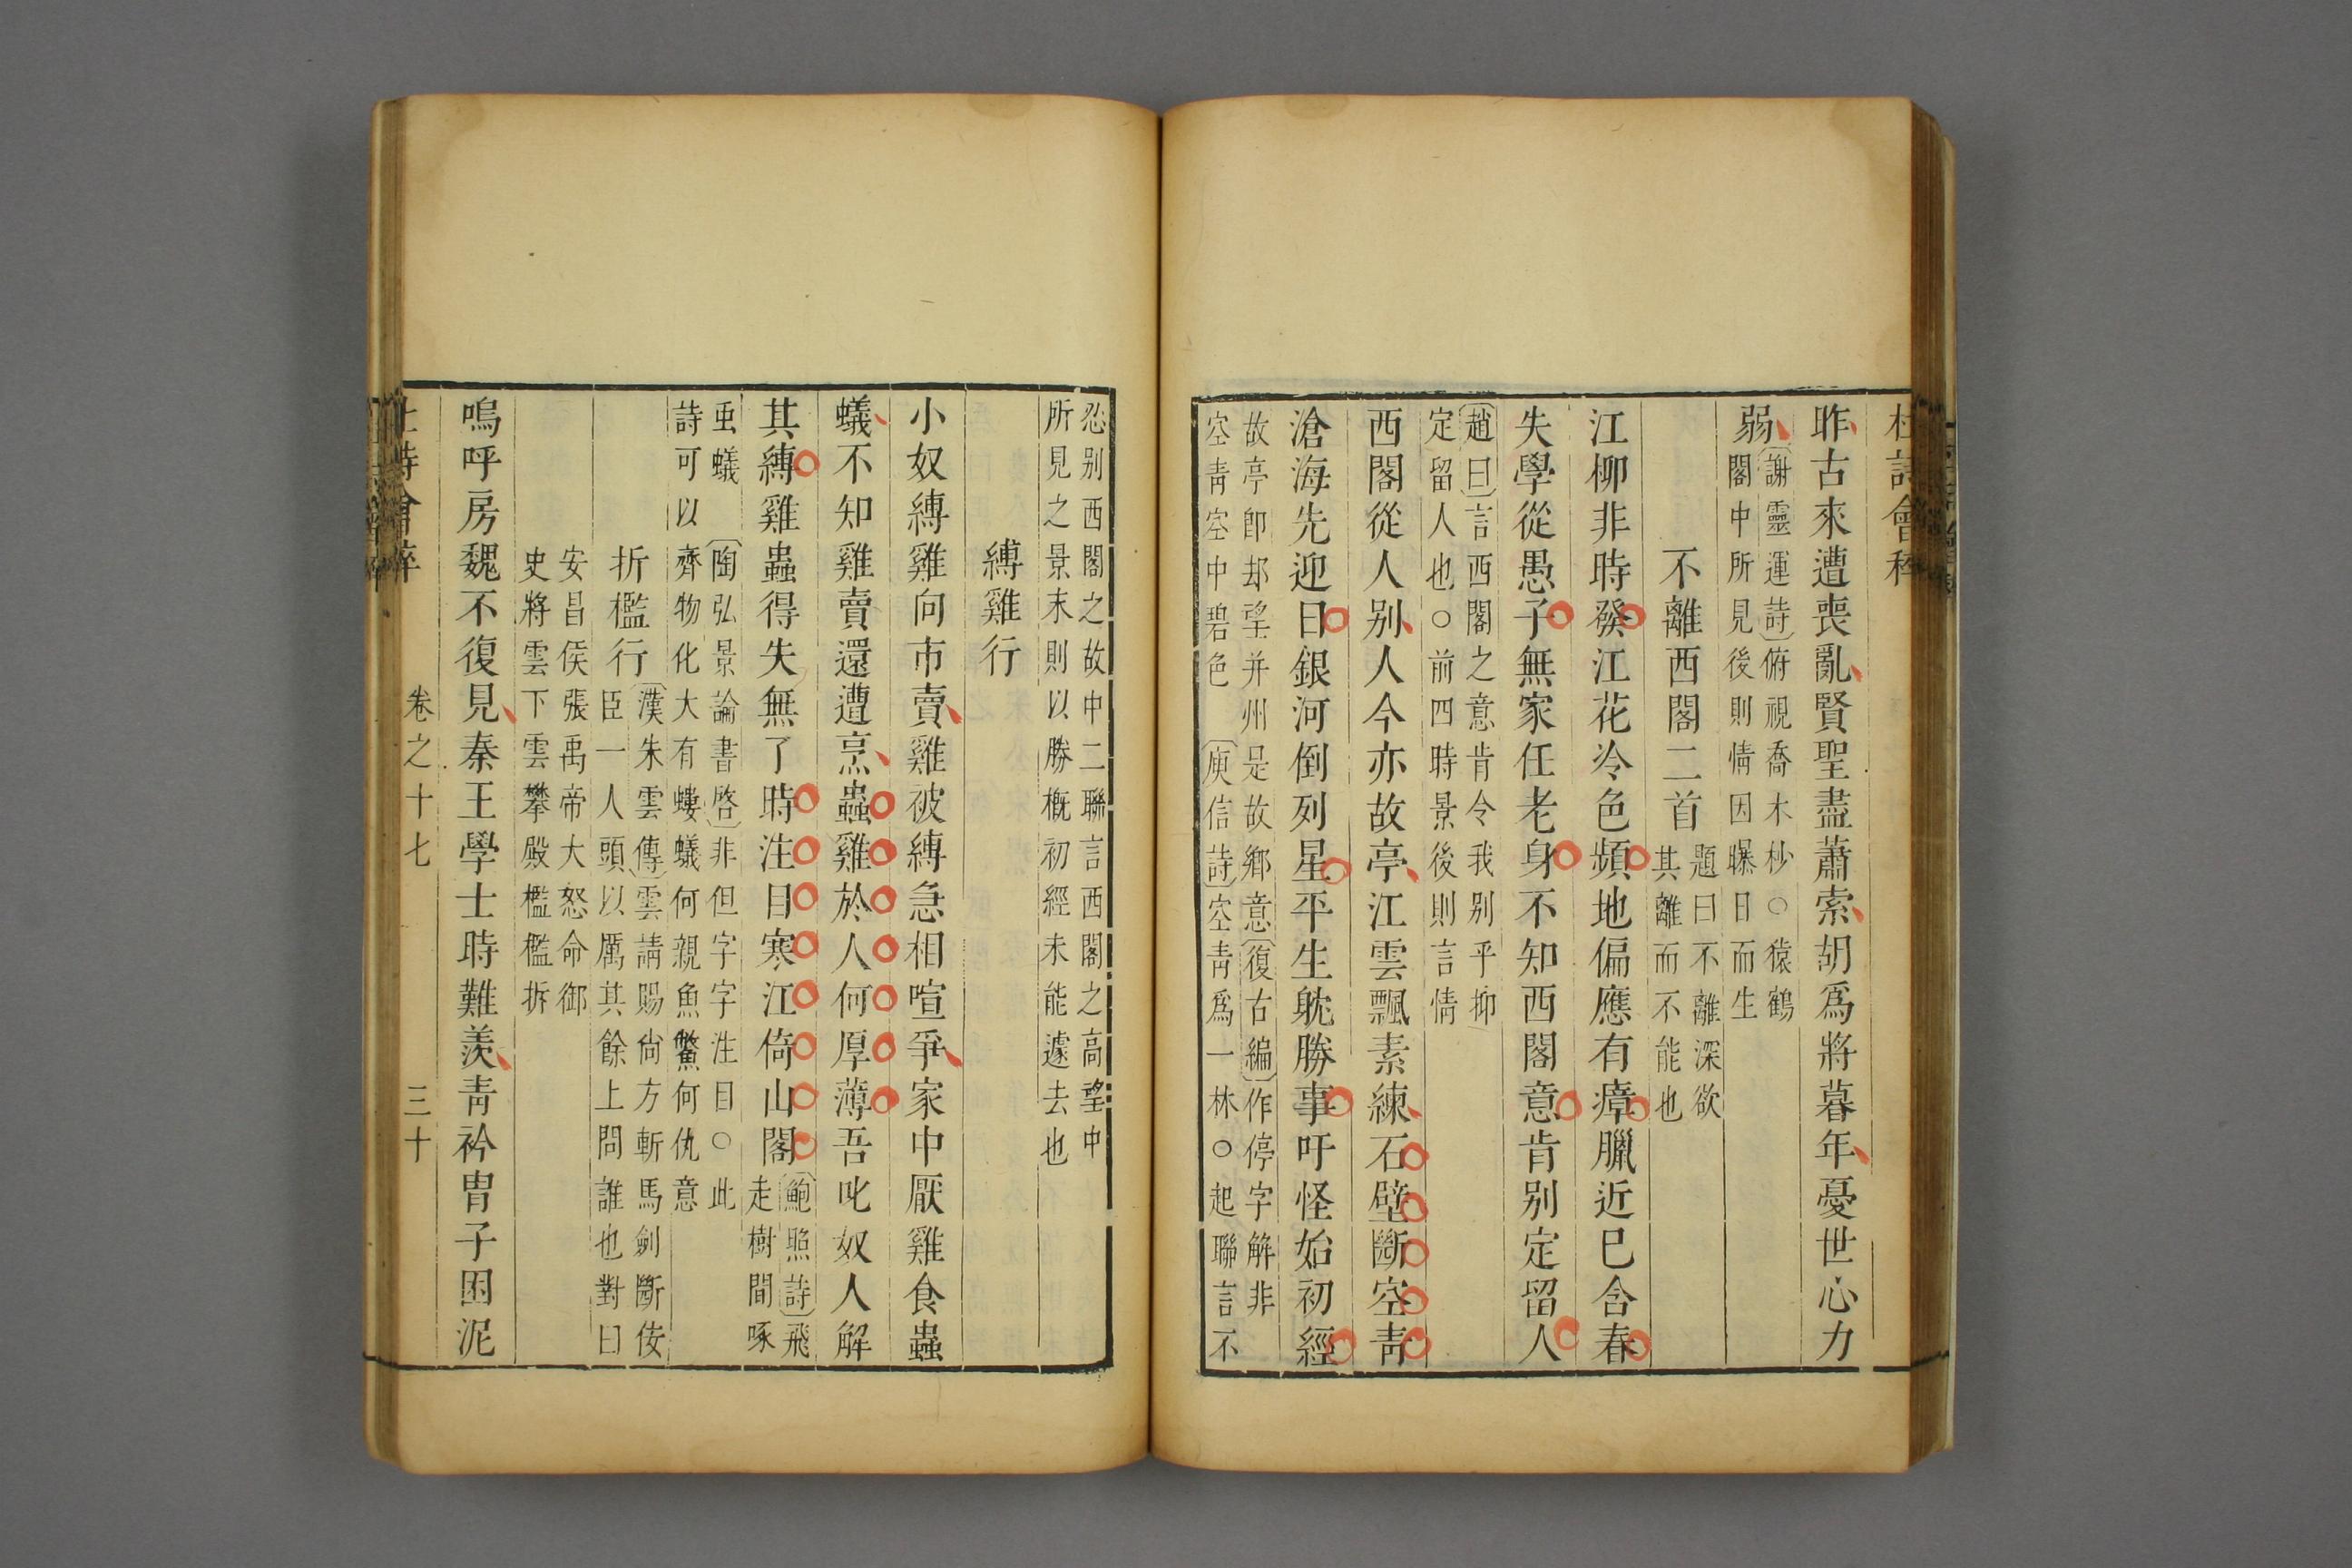 杜詩會稡
昨古來遭喪亂賢聖盡蕭索胡為將暮年憂世心力
弱
〔謝靈運詩〕俯視喬木杪○猿鶴
閣中所見後則情因曝日而生
不離西閣二首
題曰不離深欲
其離而不能也
江柳非時發江花冷色頻地偏應有瘴臘近已含春
失學從愚子無家任老身不知西閣意肯别定留人
〔趙曰〕言西閣之意肯令我别乎抑
定留人也○前四時景後則言情
西閣從人别人今亦故亭江雲飄素練石壁斷空青
滄海先迎日銀河倒列星平生躭勝事吁怪始初經
故亭卽却望并州是故鄉意〔復古編〕作停字解非
空青空中碧色 〔庾信詩〕空青為一林○起聯言不
忍别西閣之故中二聯言西閣之高望中
所見之景末則以勝概初經未能遽去也
縛雞行
小奴縛雞向市賣雞被縛急相喧爭家中厭雞食蟲
蟻不知雞賣還遭烹蟲雞於人何厚薄吾叱奴人解
其縛雞蟲得失無了時注目寒江倚山閣
〔鮑照詩〕飛
走樹間啄
虫蟻 〔陶弘景論書啓〕非但字字注目○此
詩可以齊物化大有螻蟻何親魚鱉何仇意
折檻行
〔漢朱雲傳〕雲請賜尙方斬馬劍斷佞
臣一人頭以厲其餘上問誰也對曰
安昌侯張禹帝大怒命御
史將雲下雲攀殿檻檻拆
嗚呼房魏不復見秦王學士時難羨青衿冑子困泥
杜詩會稡 卷之十七 三十